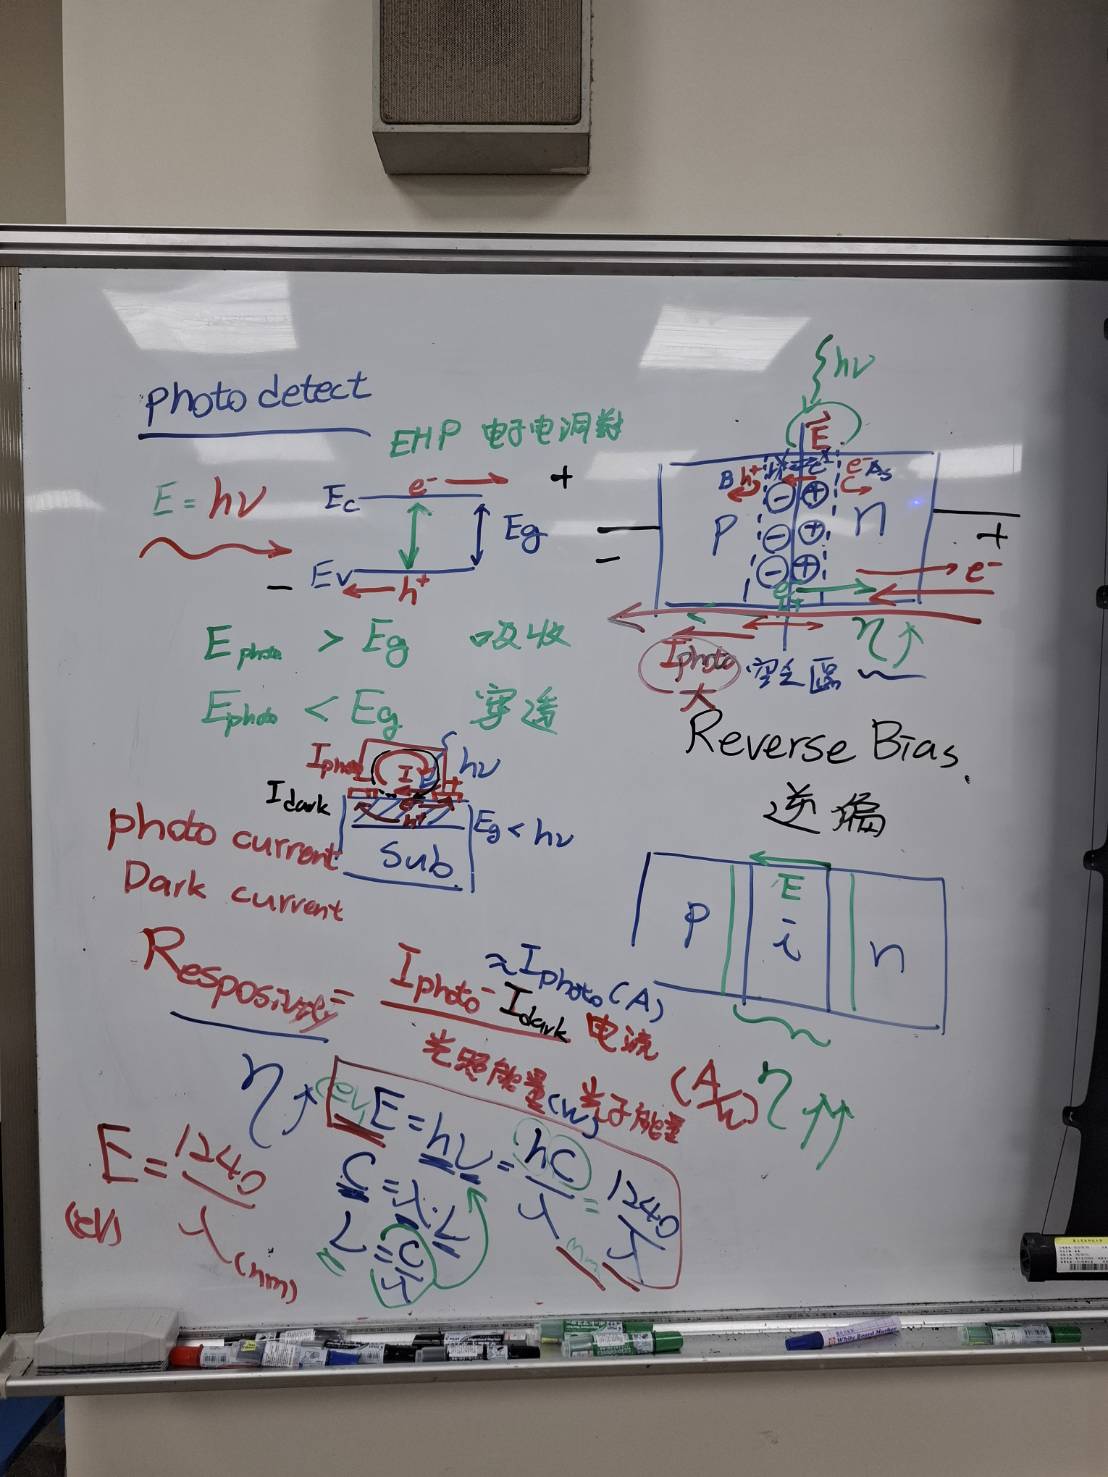 photo detect
EHP 电子电洞對
E = hν
Ec
e⁻
+
Eg
−
Ev
h⁺
E photo > Eg 吸收
Ephoto < Eg 穿透
hν
E
B h⁺
e⁻ As
p
n
−
+
e⁻
η↑
Iphoto 大
空乏區
Reverse Bias.
逆偏
Iphoto
I
hν
Idark
Eg < hν
sub
photo current
Dark current
p
E
i
n
η↑↑
Resposivity = Iphoto - Idark
≈ Iphoto (A)
电流
光照能量(W)
光子能量
(A/W)
η↑
(eV) E = hν = hc/λ = 1240/λ
nm
C = λ·ν
ν = C/λ
E = 1240/λ(nm)
(eV)
White Board Marker